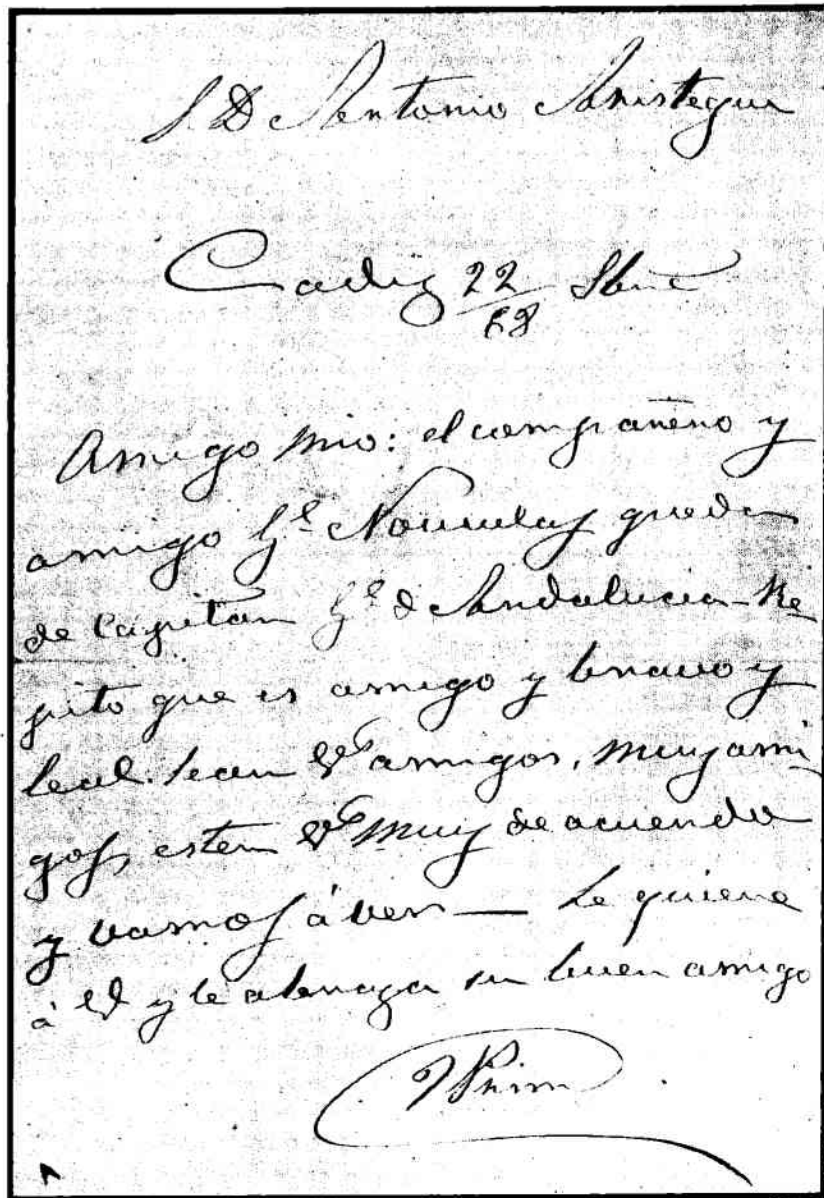 S D Antonio Aristegui
Cadiz 22 Sbre
68
Amigo mio: el compañero y
amigo Gl Nouvilas queda
de Capitan Gl de Andalucia - Re
pito que es amigo y bravo y
leal. Sean Vds amigos, muy ami
gos, esten Vds muy de acuerdo
y vamos á ver — Le quiere
á Vd y le abraza su buen amigo
J Prim